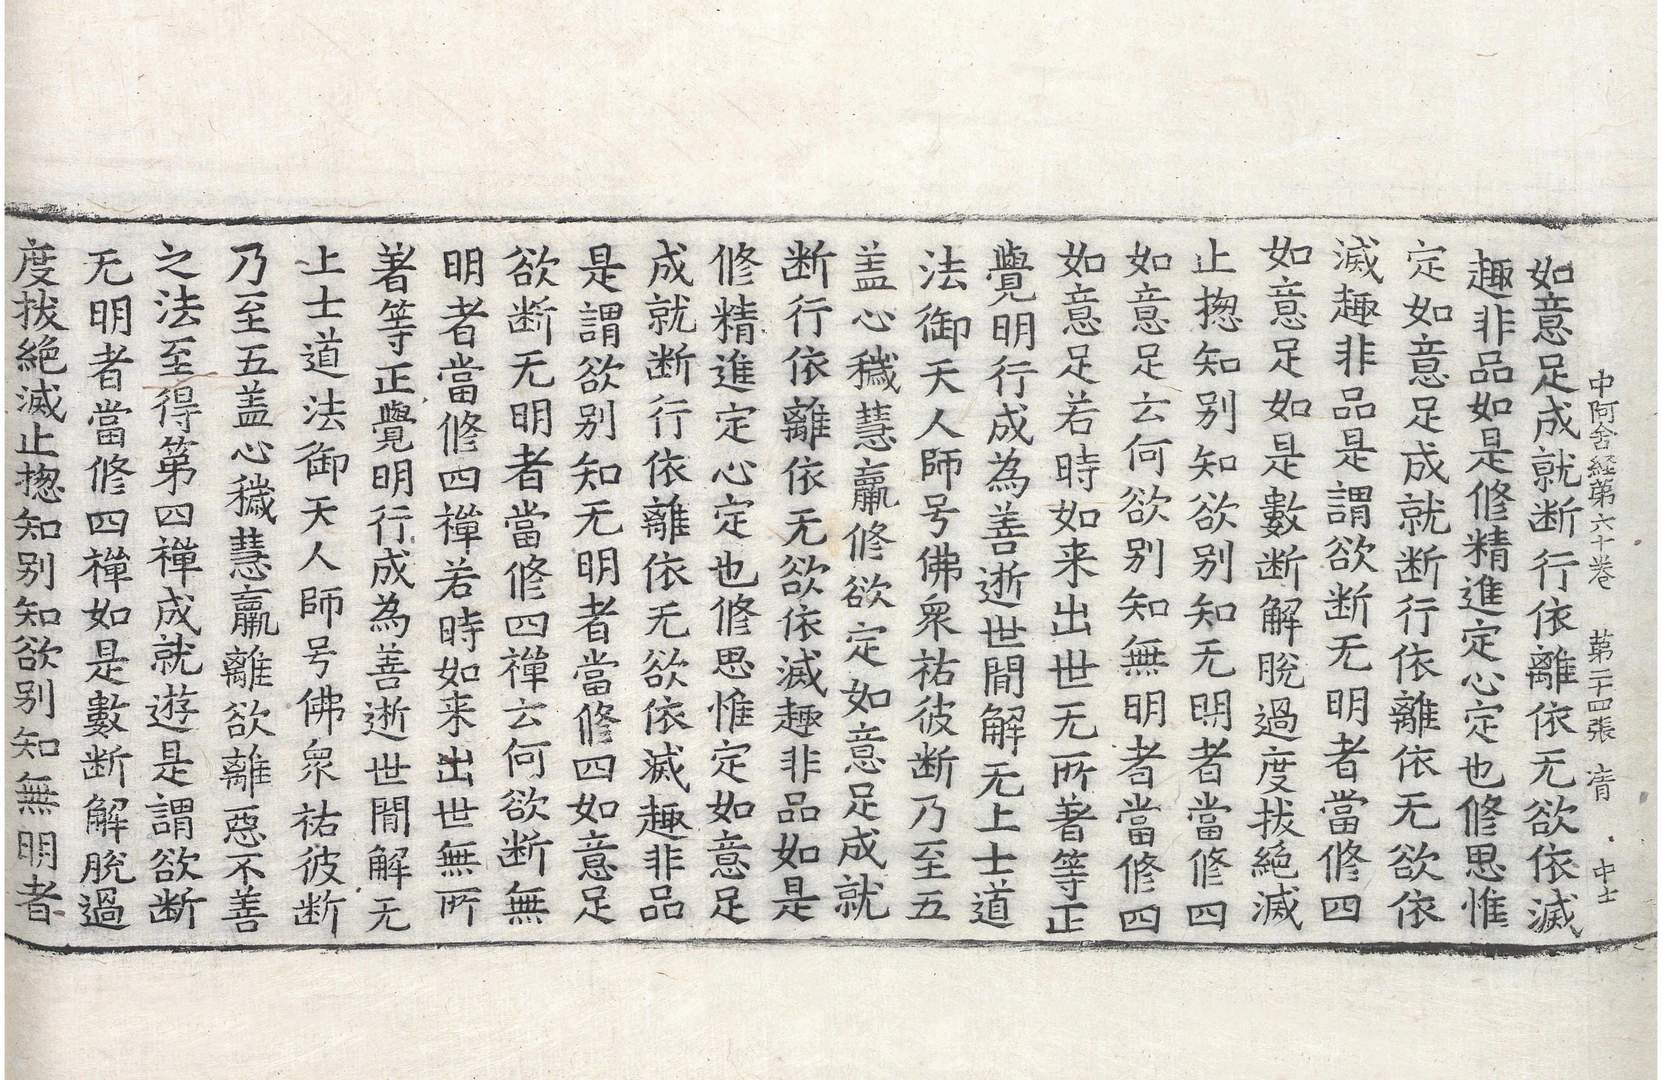 中阿含経第六十巻　第二十四張　𡨴　中士
如意足成就断行依離依无欲依滅
趣非品如是修精進定心定也修思惟
定如意足成就断行依離依无欲依
滅趣非品是謂欲断无明者當修四
如意足如是數断解脫過度拔絕滅
止揔知別知欲別知无明者當修四
如意足云何欲別知無明者當修四
如意足若時如来出世无所著等正
覺明行成為善逝世間解无上士道
法御天人師号佛衆祐彼断乃至五
盖心穢慧羸修欲定如意足成就
断行依離依无欲依滅趣非品如是
修精進定心定也修思惟定如意足
成就断行依離依无欲依滅趣非品
是謂欲別知无明者當修四如意足
欲断无明者當修四禪云何欲断無
明者當修四禪若時如来出世無所
著等正覺明行成為善逝世間解无
上士道法御天人師号佛衆祐彼断
乃至五盖心穢慧羸離欲離惡不善
之法至得第四禪成就遊是謂欲断
无明者當修四禪如是數断解脫過
度拔絕滅止揔知別知欲別知無明者